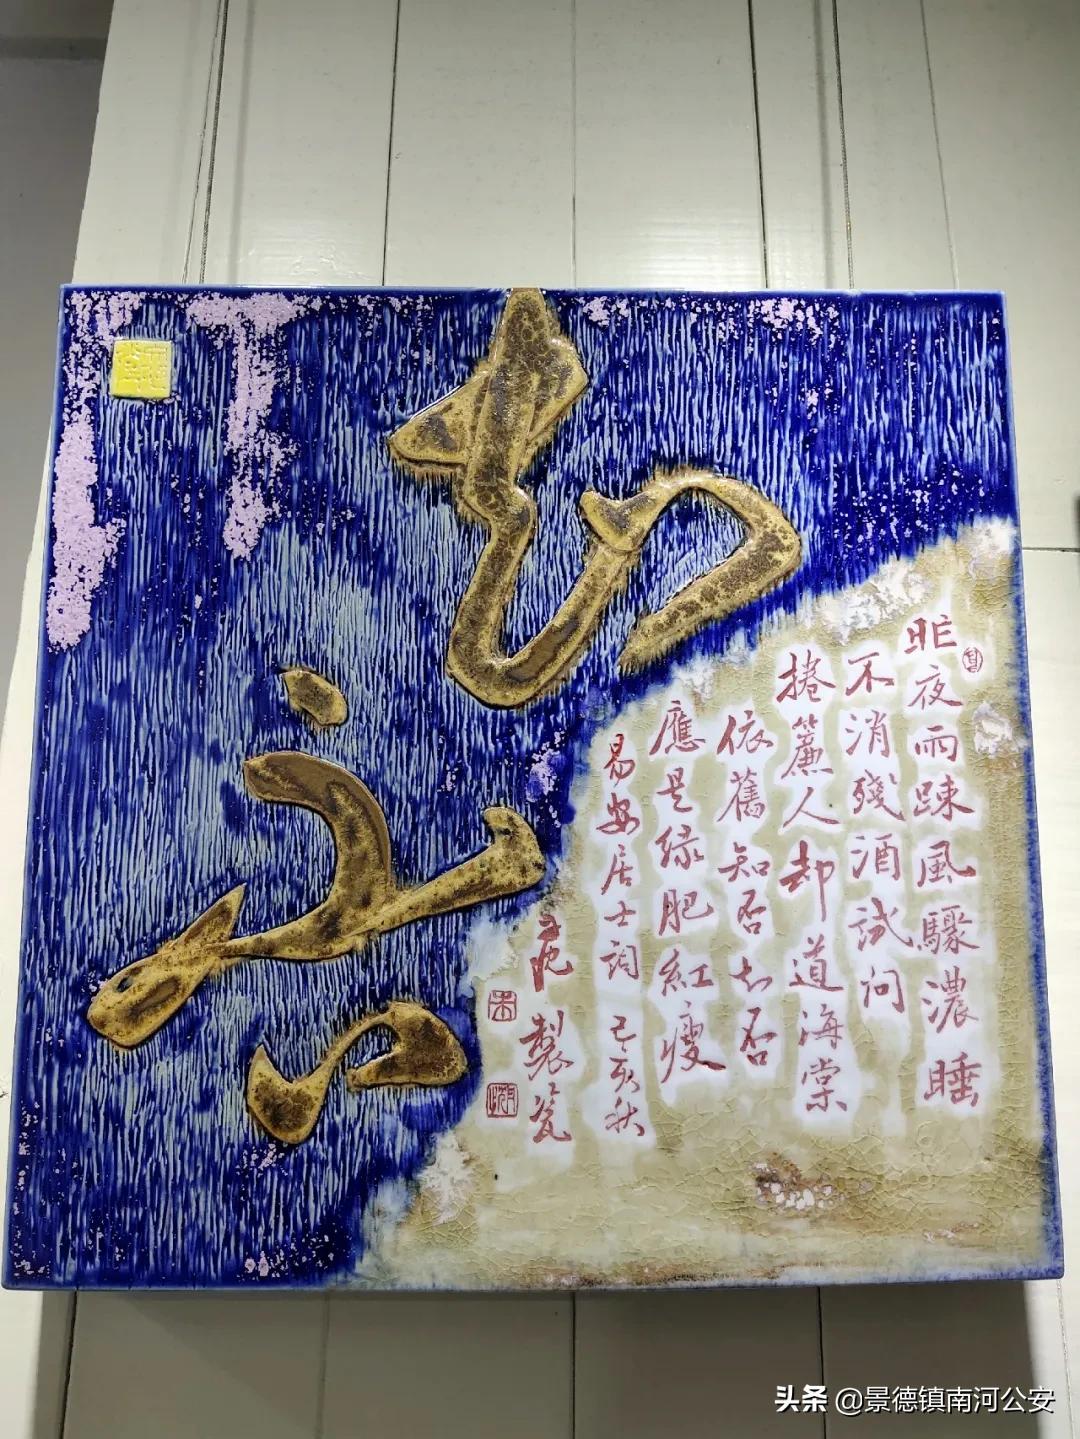 知否
昨夜雨踈風驟濃睡
不消殘酒試問
捲簾人却道海棠
依舊知否知否
應是緑肥紅瘦
易安居士詞 己亥秋
製瓷
头条 @景德镇南河公安